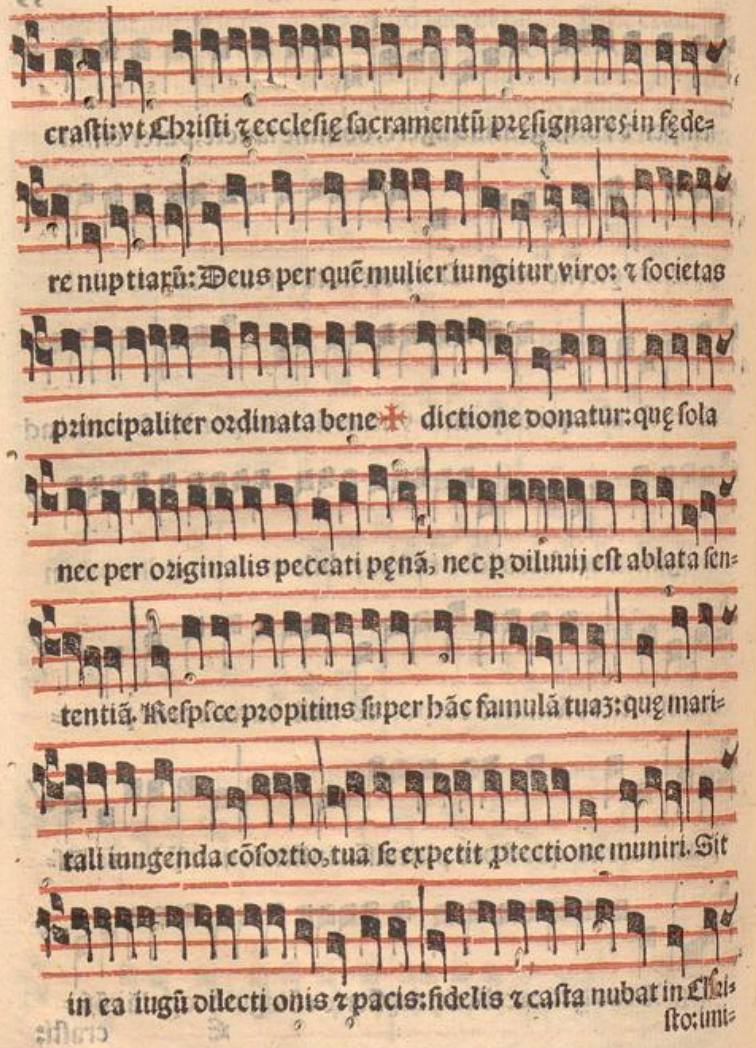 crasti: vt Christi ⁊ ecclesię sacramentũ pręsignareʒ in fęde=
re nuptiarũ: Deus per quẽ mulier iungitur viro: ⁊ societas
principaliter ordinata bene ✠ dictione donatur: quę sola
nec per originalis peccati pęnã, nec ꝑ diluuij est ablata sen=
tentiã. Respice propitius super hãc famulã tuaʒ: quę mari=
tali iungenda cõsortio, tua se expetit ꝓtectione muniri. Sit
in ea iugũ dilecti onis ⁊ pacis: fidelis ⁊ casta nubat in Chri=
sto: imi=